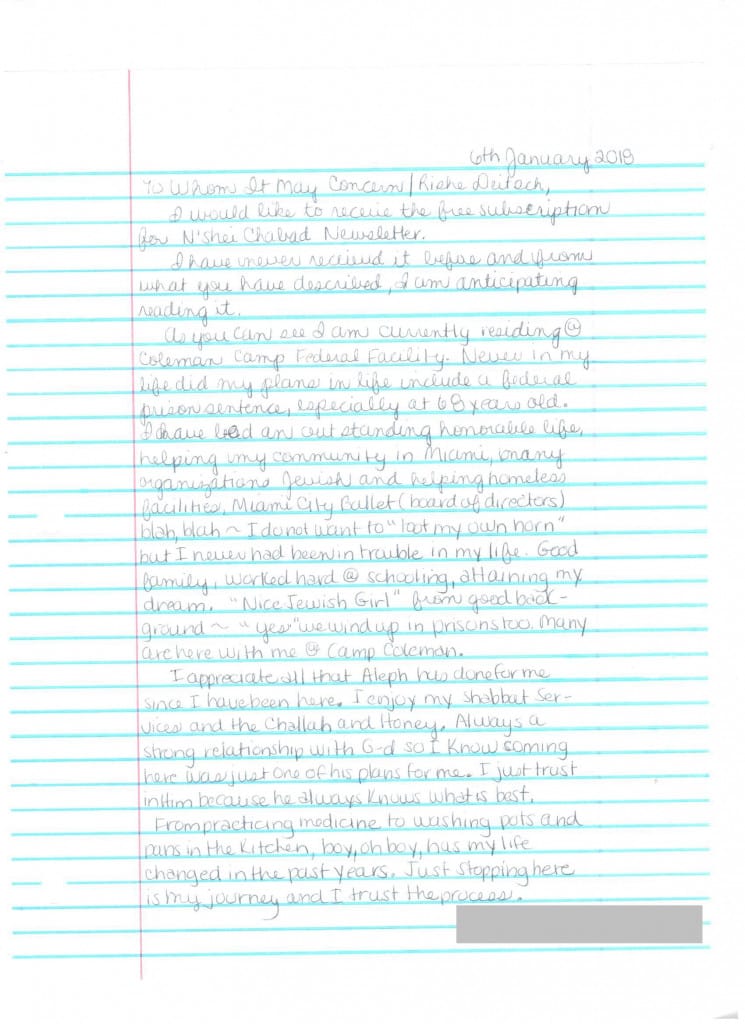 6th January 2018
To Whom It May Concern/Rishe Deitsch,
I would like to receive the free subscription
for N'shei Chabad Newsletter.
I have never received it before and from
what you have described, I am anticipating
reading it.
As you can see I am currently residing @
Coleman Camp Federal Facility. Never in my
life did my plans in life include a federal
prison sentence, especially at 68 years old.
I have led an outstanding honorable life,
helping my community in Miami, many
organizations Jewish and helping homeless
facilities, Miami City Ballet (board of directors)
blah, blah ~ I do not want to "toot my own horn"
but I never had been in trouble in my life. Good
family, worked hard @ schooling, attaining my
dream. "Nice Jewish Girl" from good back-
ground ~ "yes" we wind up in prisons too. Many
are here with me @ Camp Coleman.
I appreciate all that Aleph has done for me
since I have been here. I enjoy my Shabbat Ser-
vices and the Challah and Honey. Always a
strong relationship with G-d so I know coming
here was just one of his plans for me. I just trust
in Him because he always knows what is best.
From practicing medicine to washing pots and
pans in the kitchen, boy, oh boy, has my life
changed in the past years. Just stopping here
is my journey and I trust the process.